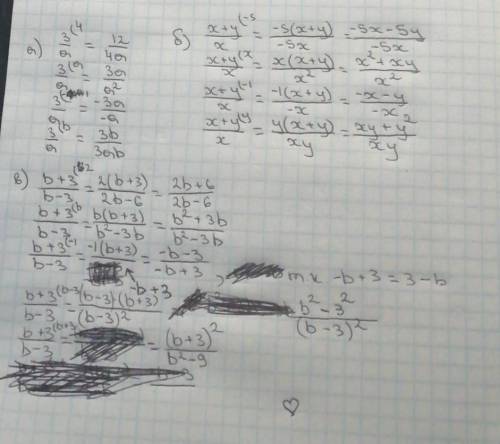 а) 3/a^(4 = 12/4a
3/a^(a = 3a/a²
3/a^(-1 = -3a/-a
3/a^b = 3b/3ab
б) x+y/x^(-5 = -5(x+y)/-5x = -5x-5y/-5x
x+y/x^(x = x(x+y)/x² = x²+xy/x²
x+y/x^(-1 = -1(x+y)/-x = -x-y/-x
x+y/x^(y = y(x+y)/xy = xy+y²/xy
в) b+3/b-3^(2 = 2(b+3)/2b-6 = 2b+6/2b-6
b+3/b-3^(b = b(b+3)/b²-3b = b²+3b/b²-3b
b+3/b-3^(-1 = -1(b+3)/-b+3 = -b-3/-b+3, т.к -b+3=3-b
b+3/b-3^(b-3 = (b-3)·(b+3)/(b-3)² b²-3²/(b-3)²
b+3/b-3^(b+3 = (b+3)²/b²-9